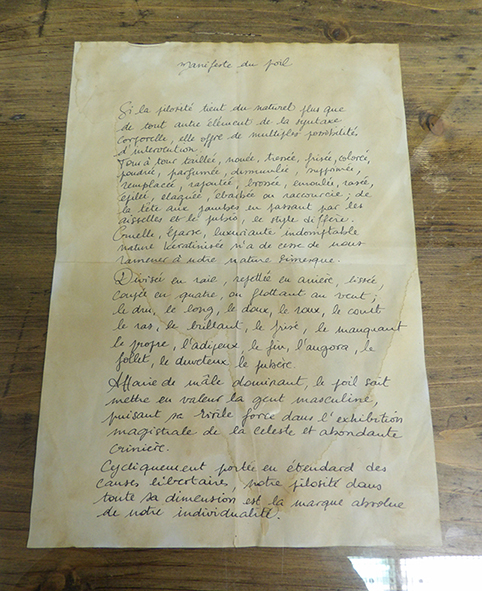 Manifeste du poil
Si la pilosité tient du naturel plus que
de tout autre élément de la syntaxe
corporelle, elle offre de multiples possibilités
d'intervention.
Tour à tour taillée, nouée, tressée, frisée, colorée,
poudrée, parfumée, dissimulée, supprimée,
remplacée, rajoutée, brossée, enroulée, rasée,
épilée, élaguée, ébarbée ou raccourcie ; de
la tête aux jambes en passant par les
aisselles et le pubis, le style diffère.
Rebelle, éparse, luxuriante indomptable
nature kératinisée n'a de cesse de nous
ramener à notre nature simiesque.
Divisée en raie, rejettée en arrière, lissée,
coupée en quatre, ou flottant au vent ;
le dru, le long, le doux, le roux, le court
le ras, le brillant, le frisé, le manquant
le propre, l'adipeux, le fin, l'angora, le
follet, le duveteux le pubère.
Affaire de mâle dominant, le poil sait
mettre en valeur la gent masculine,
puisant sa virile force dans l'exhibition
magistrale de la celeste et abondante
crinière.
Cycliquement portée en étendard des
causes libertaires, notre pilosité dans
toute sa dimension est la marque absolue
de notre individualité.